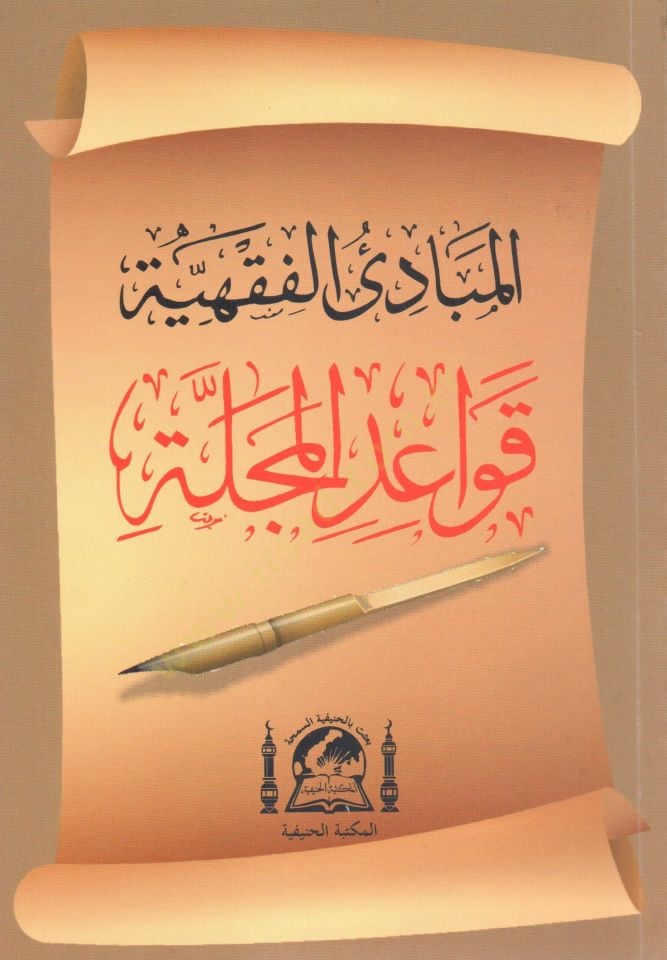 المَبَادِئُ الفِقهِيَّة
قَوَاعِدِ المَجَلَّةِ
بعثت بالحنيفية السمحة
المكتبة الحنيفية
المكتبة الحنيفية